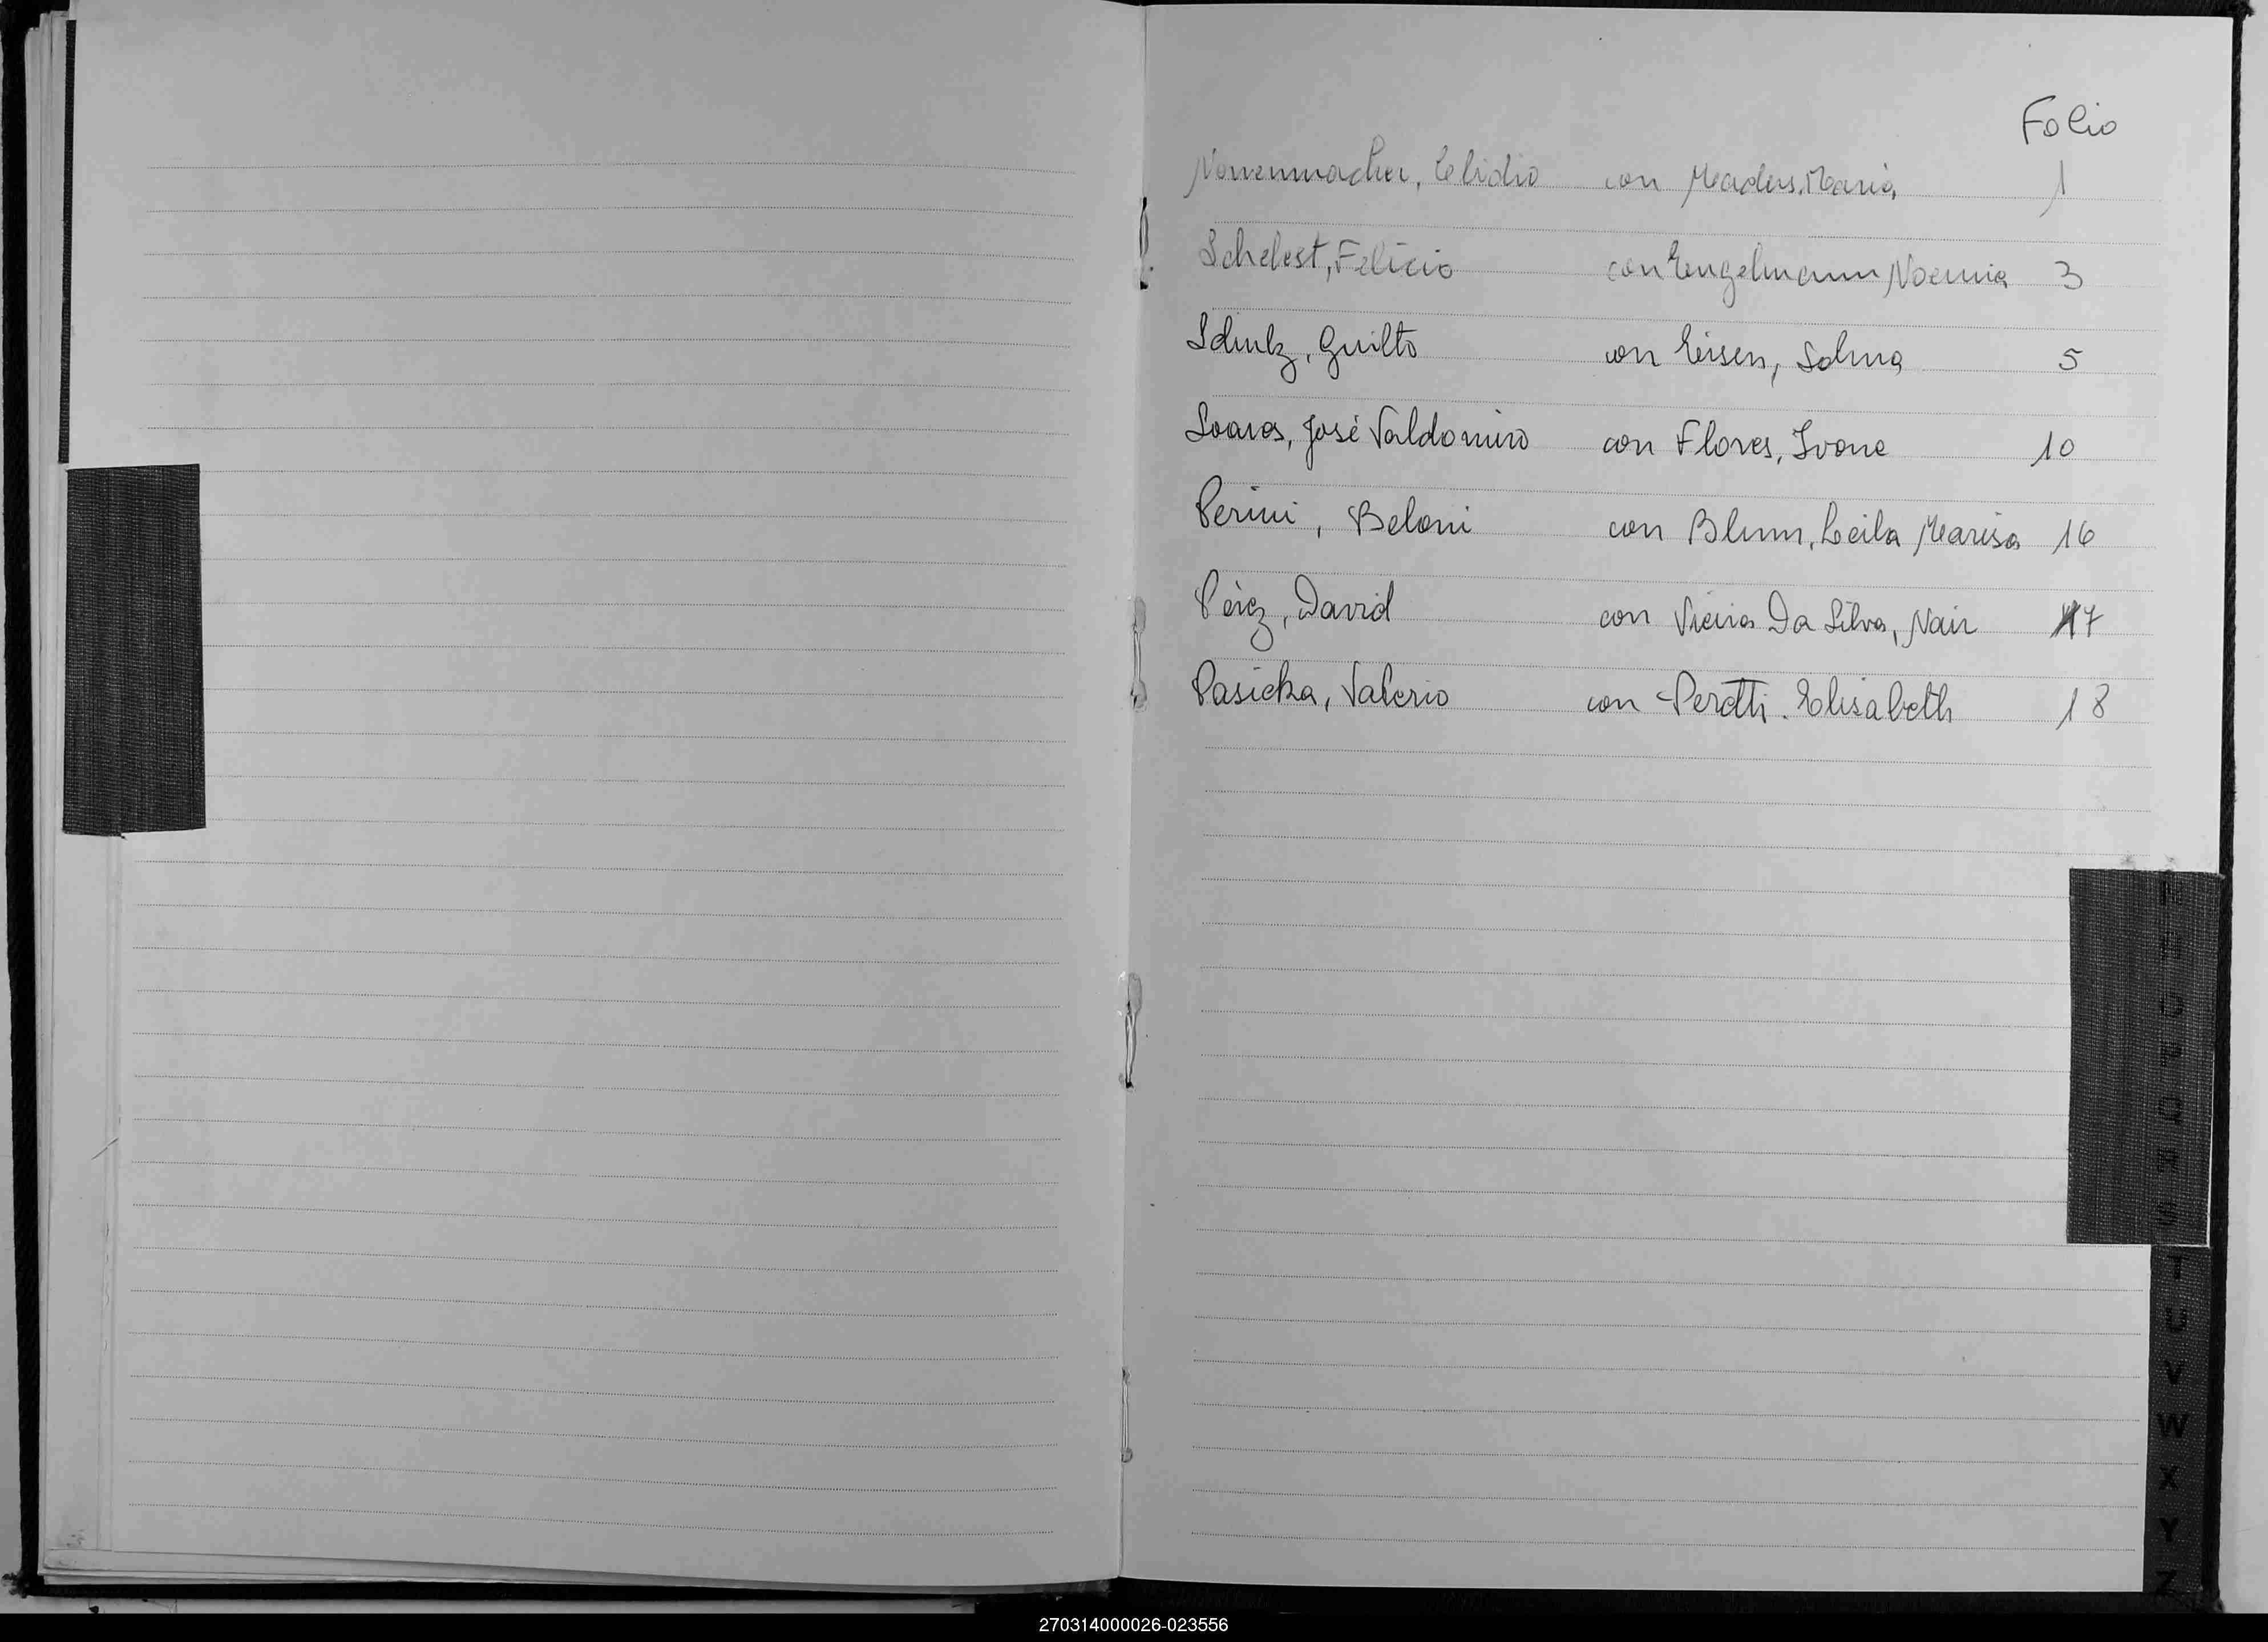 Folio
Nonenmacher, Elidio con Maders, Maria 1
Schelest, Felicio con Engelmann Noemia 3
Schulz, Guilto con Eisen, Selma 5
Soares, José Valdomiro con Flores, Ivone 10
Perini, Beloni con Blum, Leila Marisa 16
Pérez, David con Vieira Da Silva, Nair 17
Pasicka, Valerio con Perotti. Elisabeth 18
M
N
O
P
Q
R
S
T
U
V
W
X
Y
Z
270314000026-023556